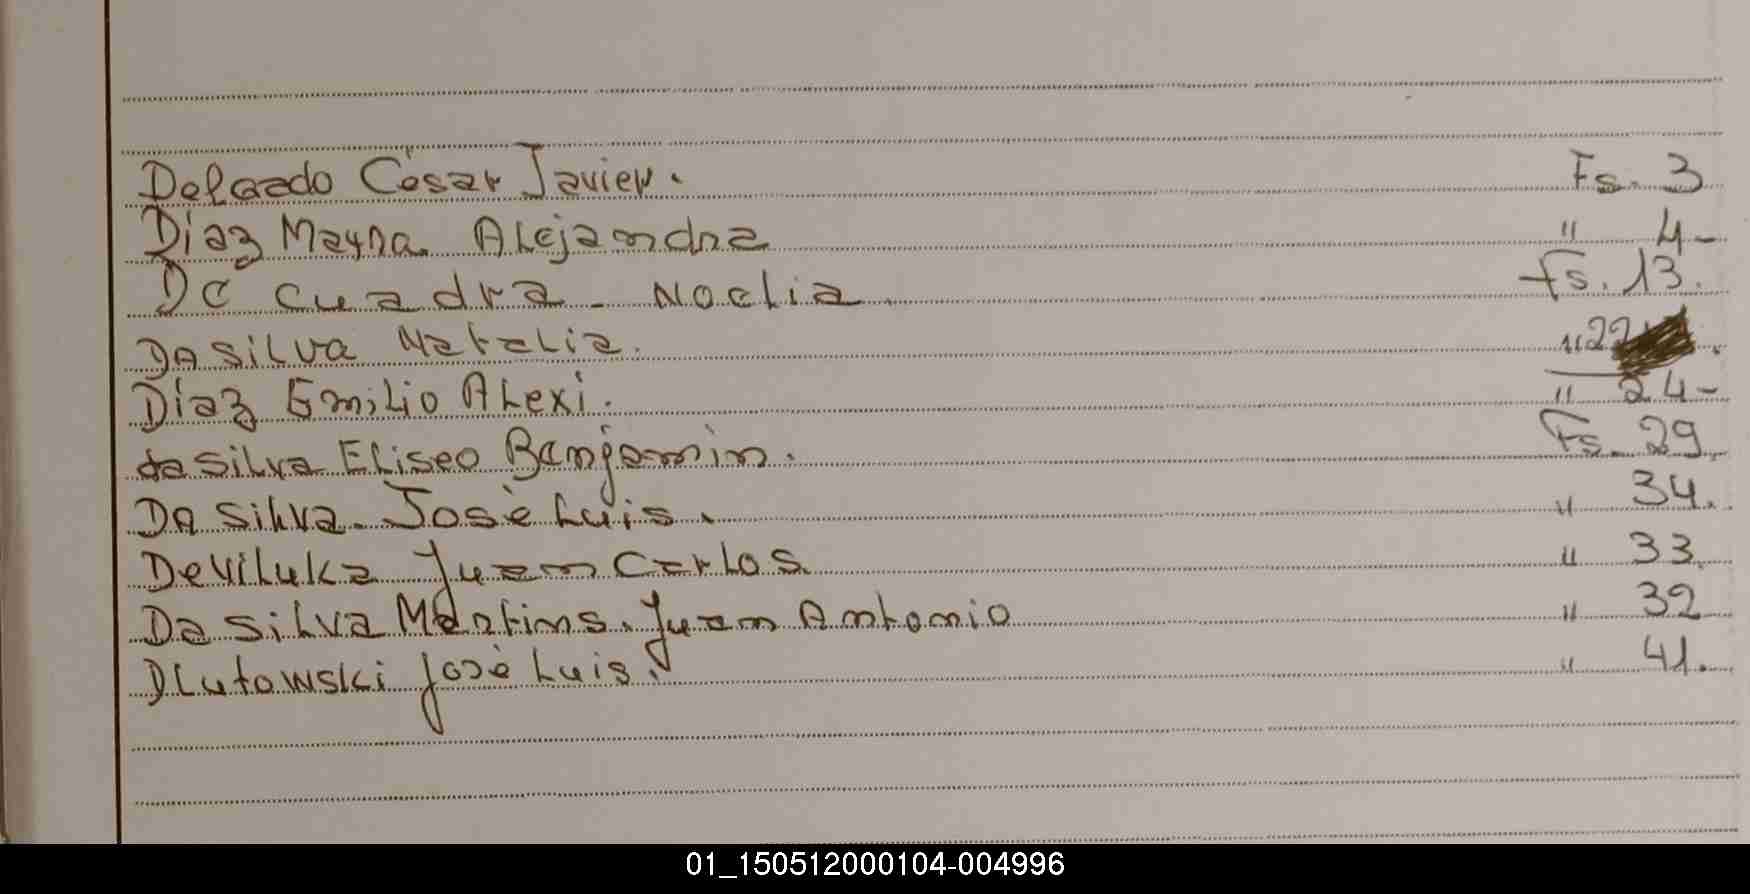 Delgado César Javier. Fs. 3
Díaz Mayra Alejandra " 4-
De Cuadra - Noelia Fs. 13.
DA SiLVa Natalia. " 22
Díaz Emilio Alexi. " 24-
da Silva Eliseo Banjamin. Fs. 29
DA Silva. Josè Luis. " 34.
Deviluka Juan Carlos. " 33
Da Silva Martins. Juan Antonio " 32
Dlutowski Josè Luis. " 41.
01_150512000104-004996